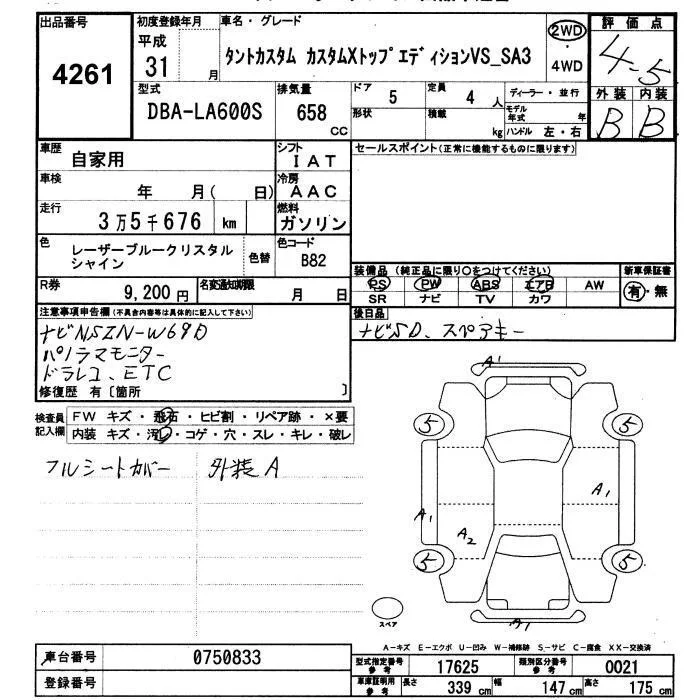 出品番号
4261
初度登録年月
平成
31 月
車名・グレード
タントカスタム カスタムXトップエディションVS_SA3
2WD
・
4WD
評価点
4-5
外装 内装
B B
型式
DBA-LA600S
排気量
658
CC
ドア
5
定員
4 人
形状
積載
kg
ディーラー・並行
モデル
年式 年
ハンドル 左・右
車歴
自家用
シフト
IAT
車検
年 月( 日)
冷房
AAC
走行
3万5千676 km
燃料
ガソリン
色
レーザーブルークリスタル
シャイン
色替
色コード
B82
R券
9,200円
名変通知期限
月 日
セールスポイント(正常に機能するものに限ります)
装備品(純正品に限り〇をつけてください)
PS PW ABS エアB AW
SR ナビ TV カワ
新車保証書
有・無
後日品
ナビSD、スペアキー
注意事項申告欄(不具合内容等は具体的に記入して下さい)
ナビNSZN-W69D
パノラマモニター
ドラレコ、ETC
修復歴 有[箇所 ]
検査員
記入欄
FW キズ・飛石・ヒビ割・リペア跡・×要
内装 キズ・汚レ・コゲ・穴・スレ・キレ・破レ
フルシートカバー
外装A
A1
5
5
A1
A1
A2
5
5
A1
スペア
A-キズ E-エクボ U-凹み W-補修跡 S-サビ C-腐食 XX-交換済
車台番号
0750833
登録番号
型式指定番号
参考
17625
類別区分番号
参考
0021
車庫証明用
参考
長さ
339 cm
幅
147 cm
高さ
175 cm